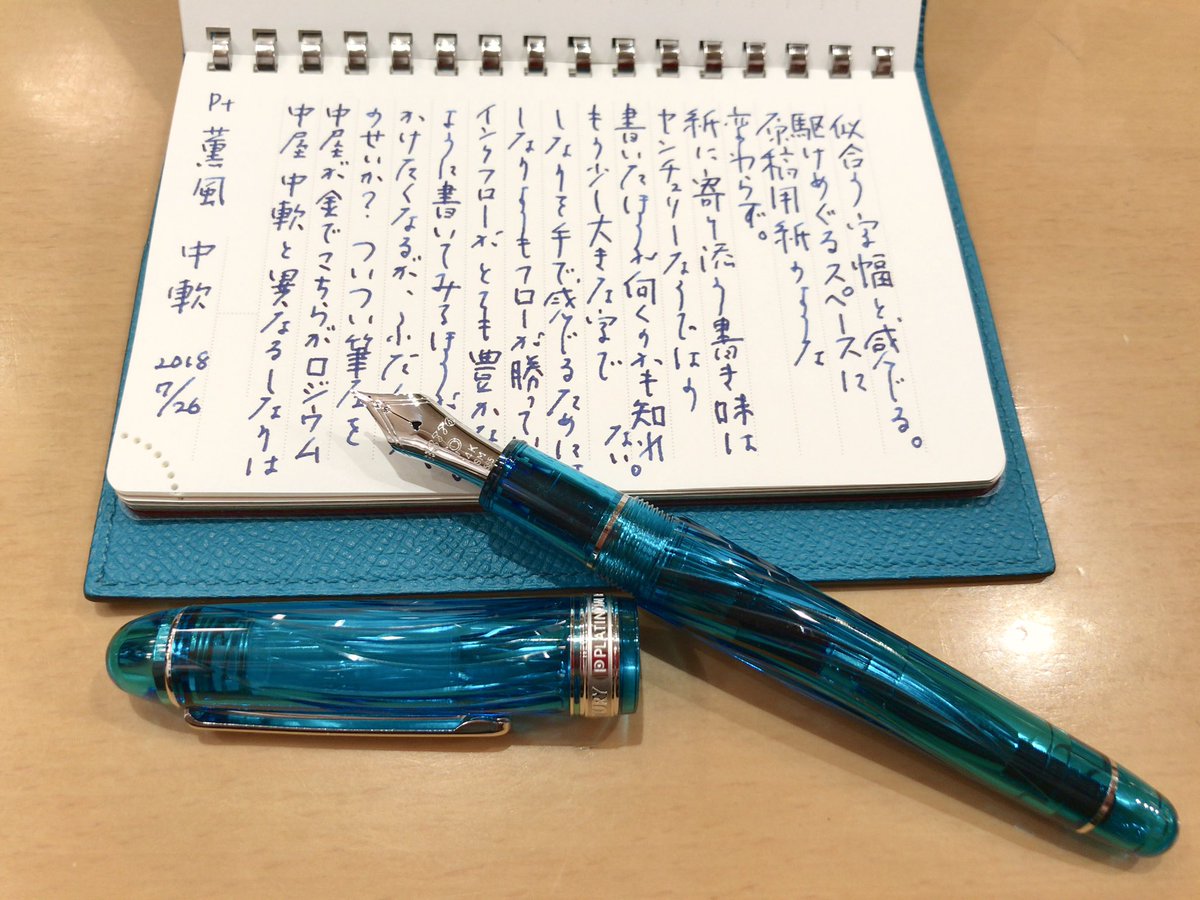 P+ 薫風 中軟 2018 7/26
中屋 中軟と異なるしなりは
中屋が金でこちらがロジウム
のせいか? ついつい筆圧を
かけたくなるが、ふだん
ように書いてみるほうが
インクフローがとても豊かな
しなりよりもフローが勝ってい
しなりを手で感じるためには
もう少し大きな字で
書いたほうが向くのかも知れない。
センチュリーならではの
紙に寄り添う書き味は
変わらず。
原稿用紙のような
駆けめぐるスペースに
似合う字幅と感じる。
URY P PLATINUM